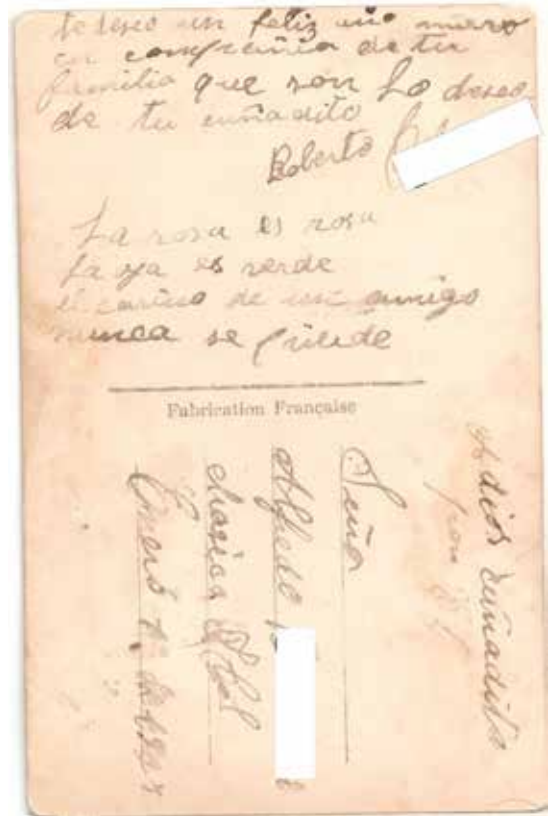 te deseo un feliz año nuevo
en compañia de tu
familia que son Lo deseo
de tu cuñadito
Roberto
La rosa es rosa
La oja es verde
el cariño de un amigo
nunca se puede
Fabrication Française
Señor
Alfredo
chosica
Enero 1º de
Adios cuñadito